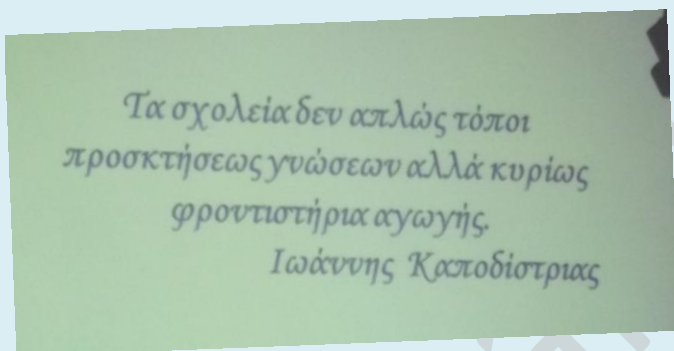 Τα σχολεία δεν απλώς τόποι
προσκτήσεως γνώσεων αλλά κυρίως
φροντιστήρια αγωγής.
Ιωάννης Καποδίστριας